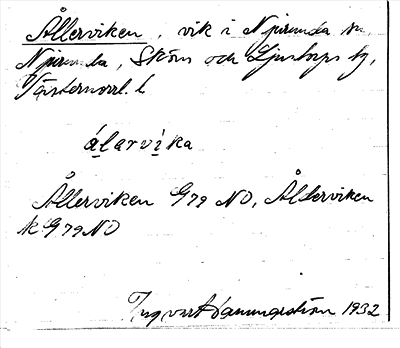 Ållerviken, vik i Njurunda sn,
Njurunda, Sköns och Ljustorps tg,
Västernorrl. l
álarvìka
Ållerviken G79 NO, Ållerviken
k G79 NO
Ingvart Hammarström 1932